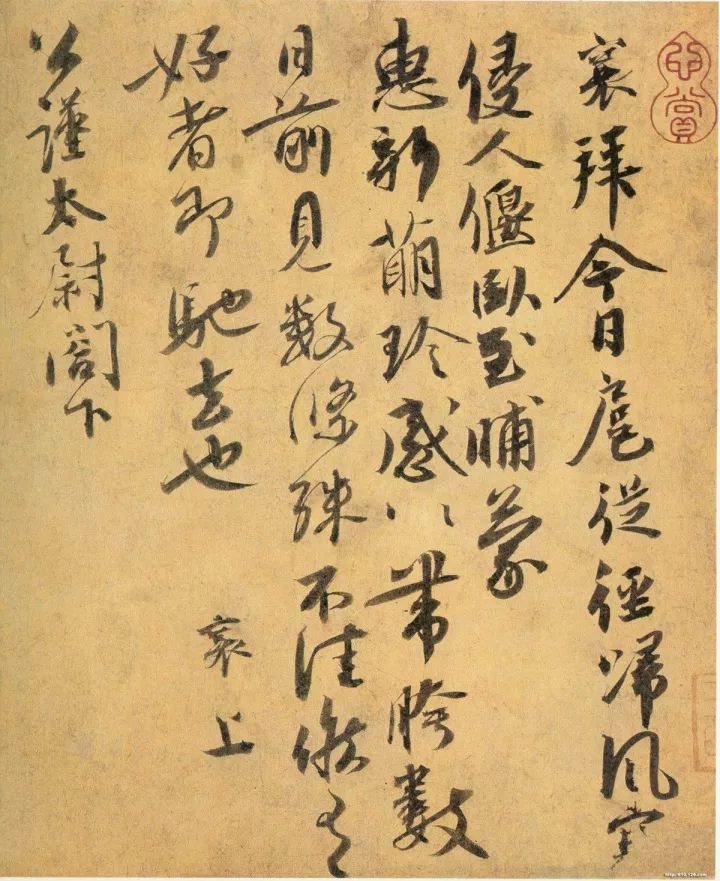 襄拜今日扈從徑歸風寒
侵人偃臥至晡蒙
惠新萌珍感〻帶胯數
日前見數條殊不佳候有
好者即馳去也
襄上
公謹太尉閤下
http://619.126.com